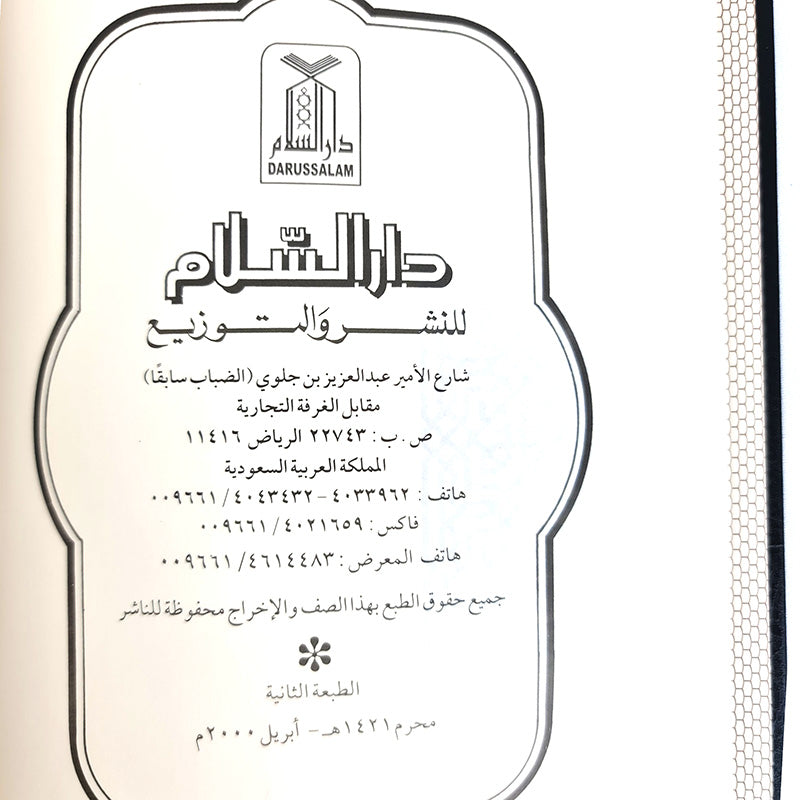 دار السلام
DARUSSALAM
دار السّلام
للنشر والتوزيع
شارع الأمير عبدالعزيز بن جلوي (الضباب سابقًا)
مقابل الغرفة التجارية
ص.ب: ٢٢٧٤٣ الرياض ١١٤١٦
المملكة العربية السعودية
هاتف: ٤٠٣٣٩٦٢ - ٤٠٤٣٤٣٢ / ٠٠٩٦٦١
فاكس: ٤٠٢١٦٥٩ / ٠٠٩٦٦١
هاتف المعرض: ٤٦١٤٤٨٣ / ٠٠٩٦٦١
جميع حقوق الطبع بهذا الصف والإخراج محفوظة للناشر
الطبعة الثانية
محرم ١٤٢١هـ - أبريل ٢٠٠٠م